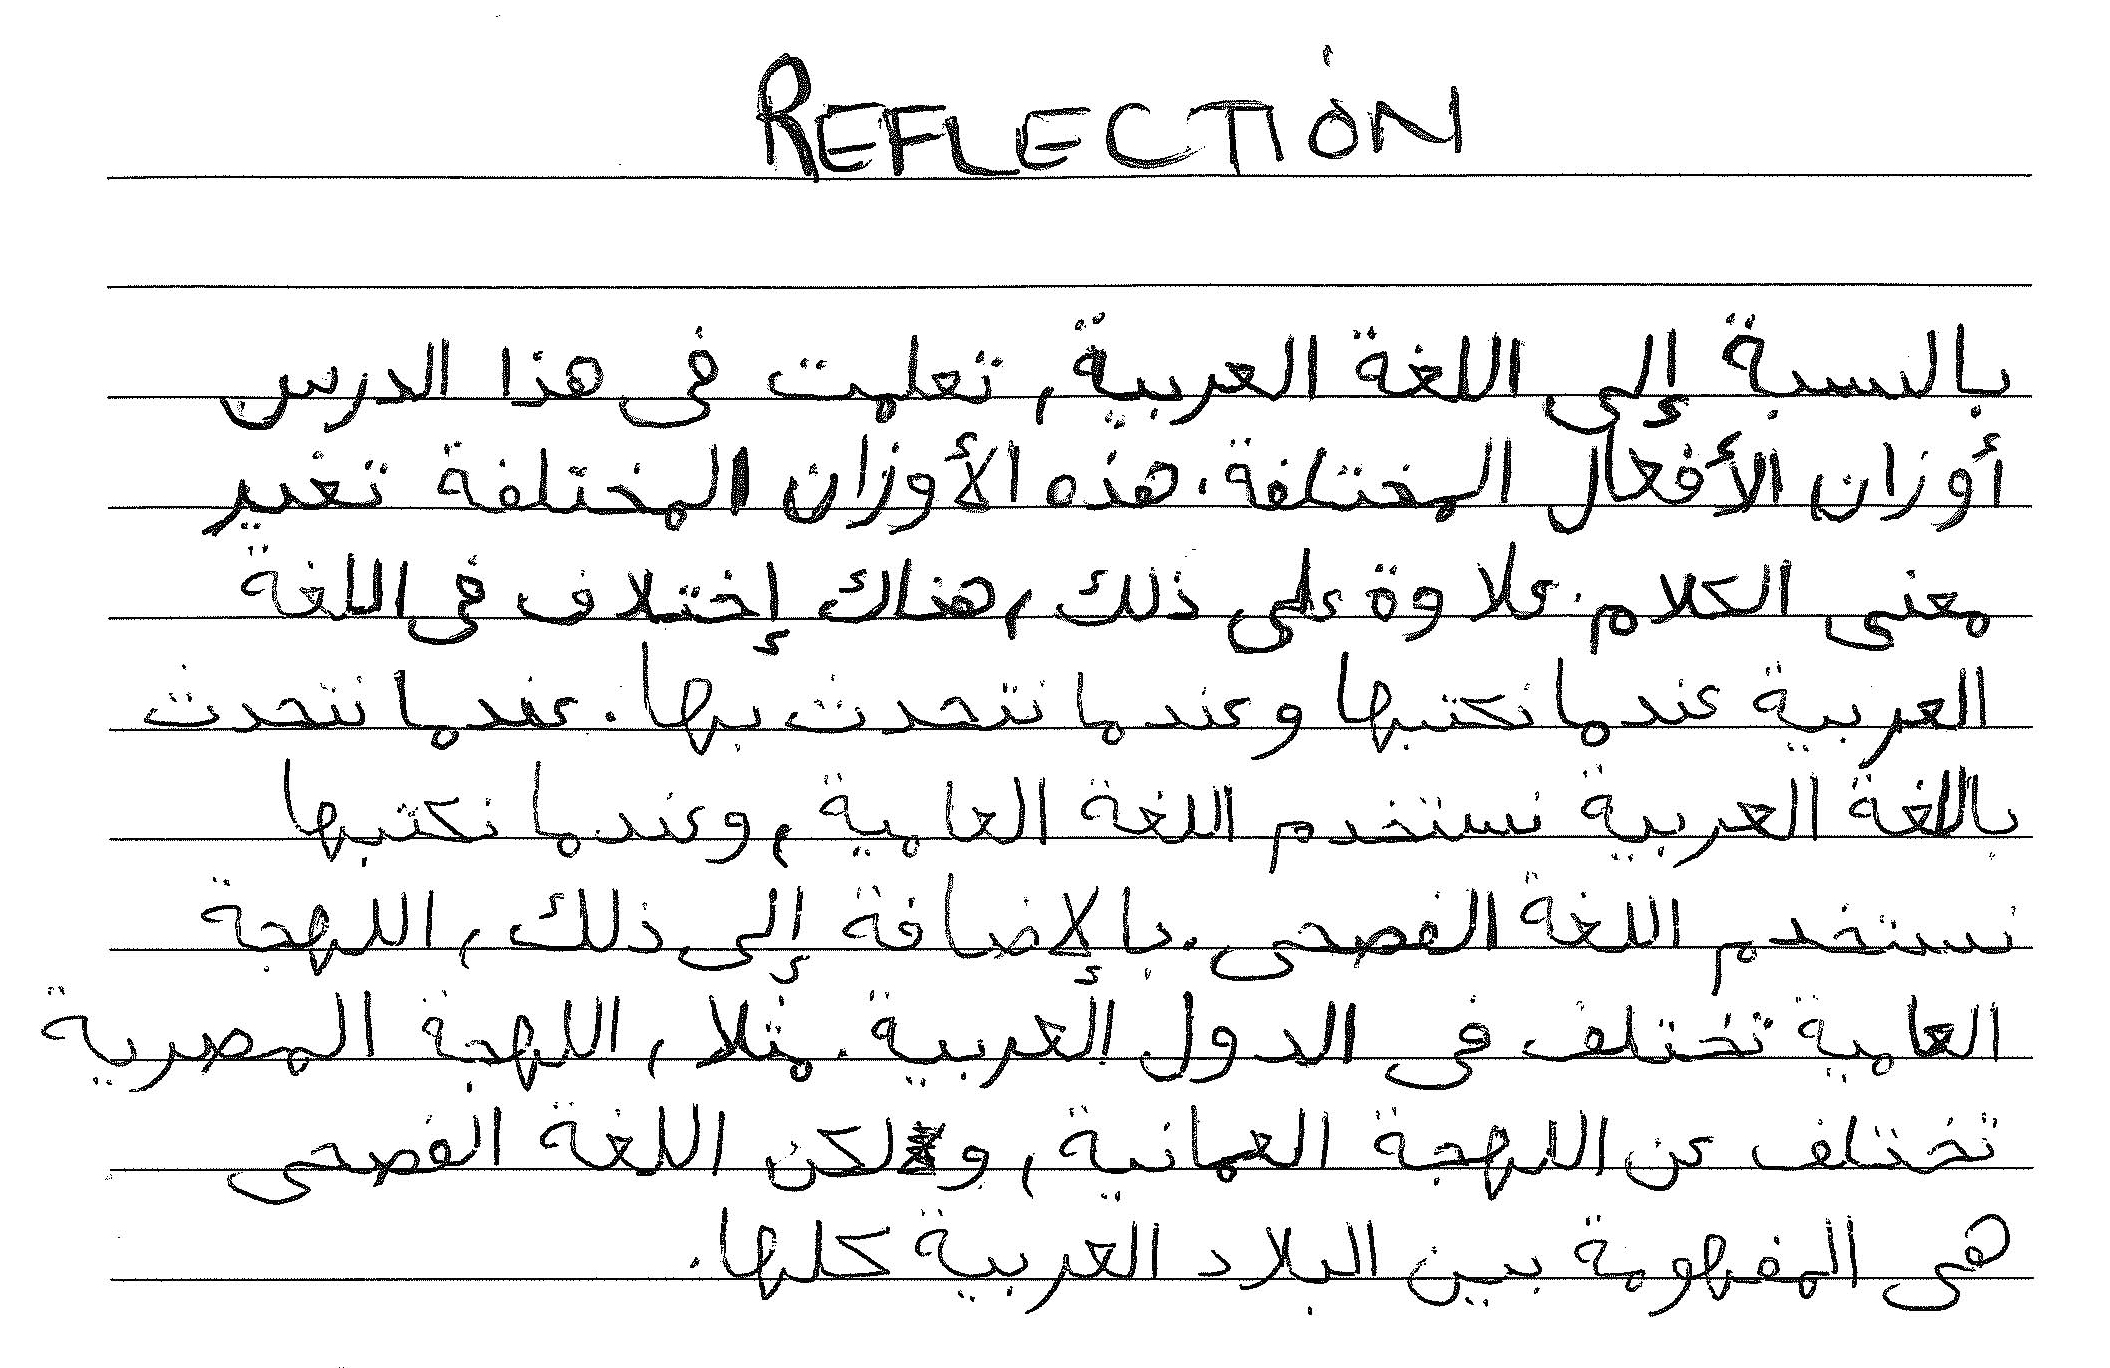 REFLECTION
بالسبة إلى اللغة العربية, تعلمت في هذا الدرس
أوزان الأفعال المختلفة. هذه الأوزان المختلفة تغير
معنى الكلام. علاوة على ذلك, هناك إختلاف في اللغة
العربية عندما نكتبها وعندما نتحدث بها. عندما نتحدث
باللغة العربية نستخدم اللغة العامية, وعندما نكتبها
نستخدم اللغة الفصحى. بالإضافة إلى ذلك, اللهجة
العامية تختلف في الدول العربية. مثلا, اللهجة المصرية
تختلف عن اللهجة العمانية, ولكن اللغة الفصحى
هي المفهومة بين البلاد العربية كلها.